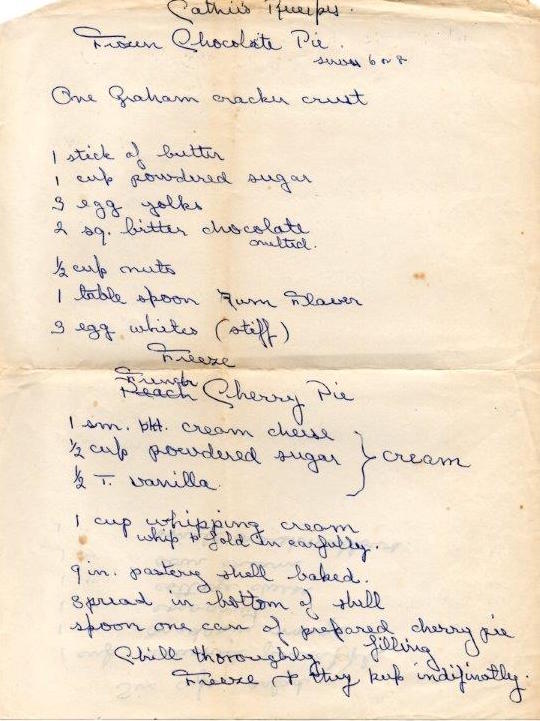 Cathie's Recipes.
Frozen Chocolate Pie.
serves 6 or 8
One Graham cracker crust
1 stick of butter
1 cup powdered sugar
3 egg yolks
2 sq. bitter chocolate
melted.
½ cup nuts
1 table spoon Rum Flaver
3 egg whites (stiff)
Freeze
French
Peach Cherry Pie
1 sm. pkt. cream cheese
½ cup powdered sugar } cream
½ T. vanilla.
1 cup whipping cream
whip & fold in carfully.
9 in. pastery shell baked.
spread in bottom of shell
spoon one can of prepared cherry pie
filling
Chill thoroughly
Freeze & they keep indifinatly.